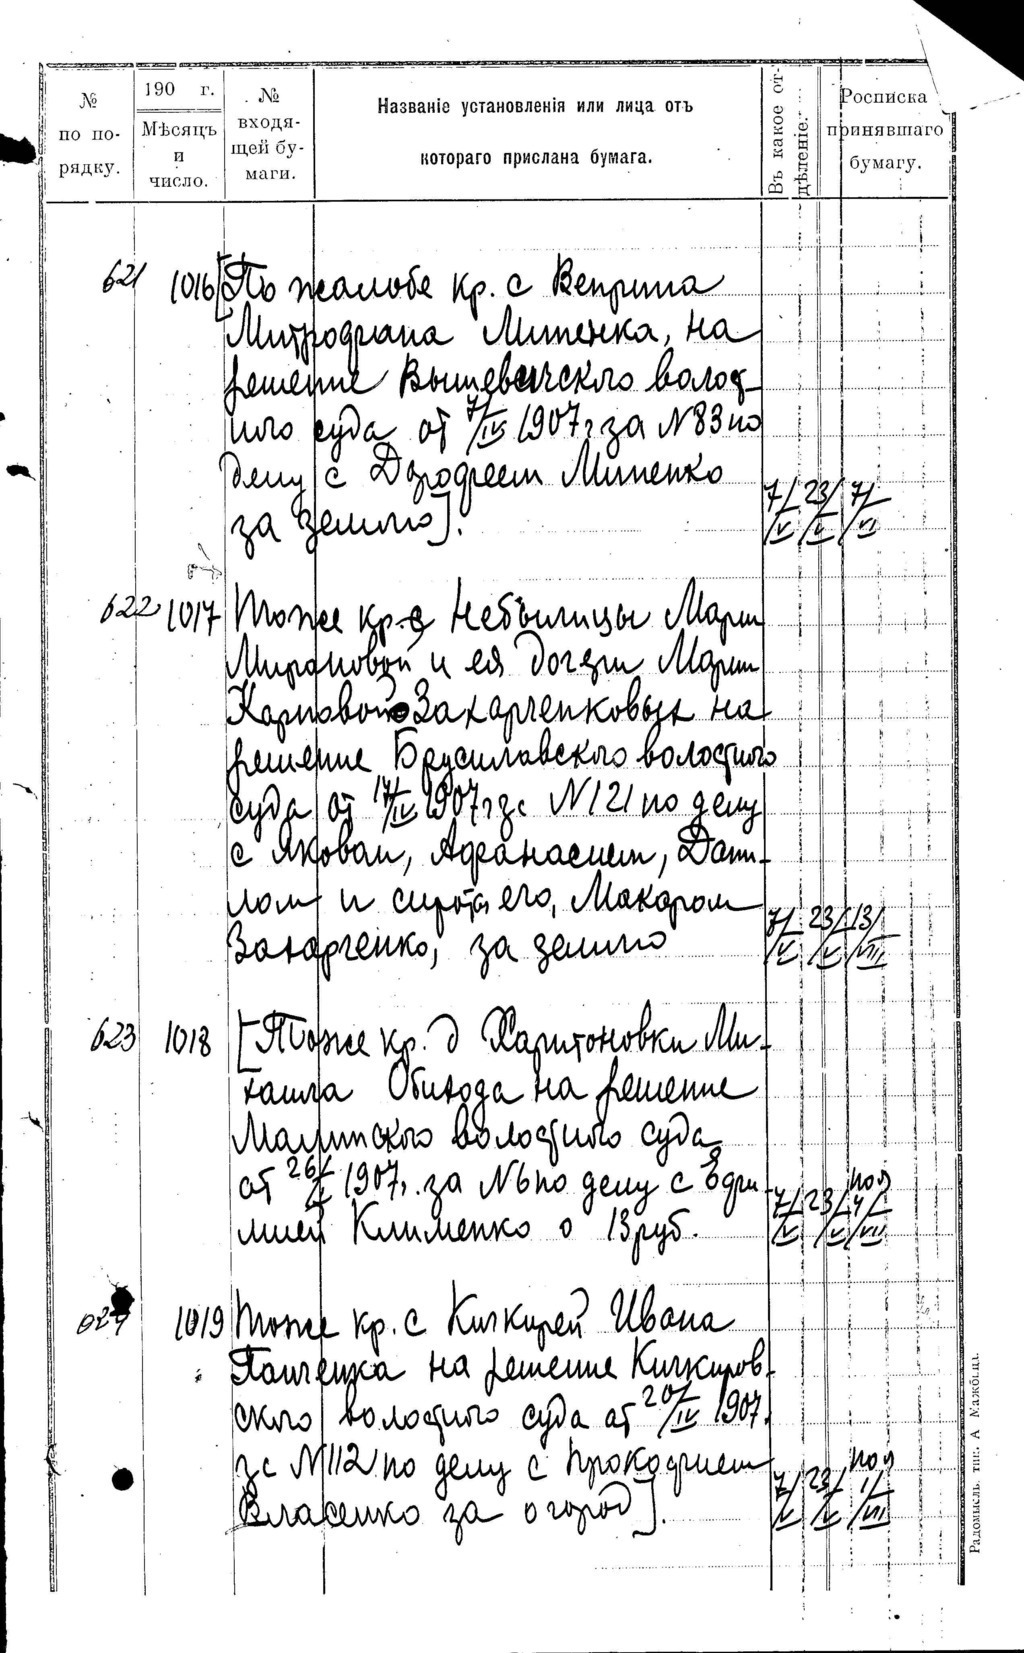 № по порядку.
190 г. Мѣсяцъ и число.
№ входящей бумаги.
Названіе установленія или лица отъ
котораго прислана бумага.
Въ какое отдѣленіе.
Росписка принявшаго бумагу.
621 1016 [По жалобе кр. с Веприна
Митрофана Липенка, на
решение Вышевичского волост-
ного суда от 7/IV 1907 г за N 83 по
делу с Дорофеем Липенко
за землю]. 7/V 23/V 7/VI
622 1017 Тоже кр. с Небылицы Марии
Мироновой и ея дочери Марии
Карповой Захарченковых на
решение Брусиловского волостного
суда от 17/IV 1907 г за N 121 по делу
с Яковом, Афанасием, Дани-
лом и сирота его, Макаром
Захарченко, за землю 7/V 23/V 13/VIII
623 1018 [Тоже кр. д Харитоновки Ми-
хаила Обихода на решение
Малинского волостного суда
от 26/I 1907 г. за N 6 по делу с Ефи-
мией Клименко о 13 руб. 7/V 23/V пол 4/VII
624 1019 Тоже кр. с Кичкирей Ивана
Панченка на решение Кичкиров-
ского волостного суда от 20/IV 1907
за N 112 по делу с Прокофием
Власенко за огород]. 7/V 23/V пол 1/VII
Радомысль, тип. А Мажбица.